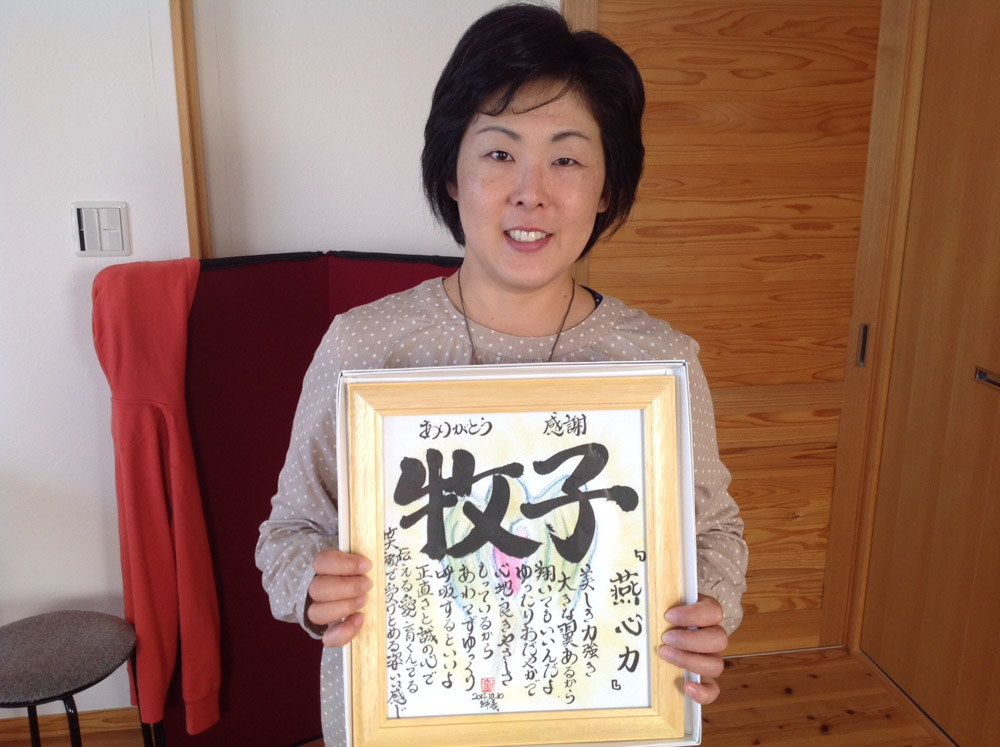 ありがとう 感謝
牧子
『燕心力』
美しき力強き
大きな翼あるから
翔いてもいいんだよ
ゆったりおだやかで
心地良きやさしさ
もっているから
あわてずゆっくり
呼吸するといいよ
正直さと誠の心で
伝える愛育くんでる
笑顔で受けとめる深い感じ